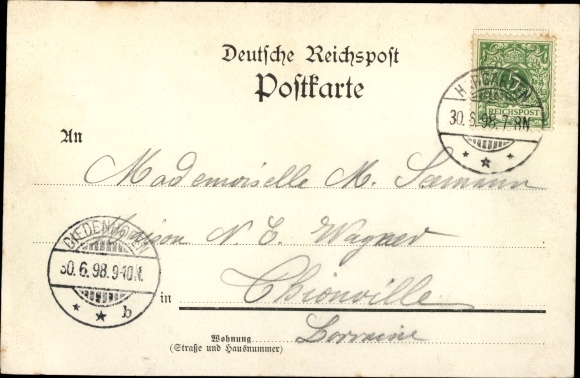 Deutsche Reichspost
Postkarte
5
REICHSPOST
30.6.98.7-8N
An
Mademoiselle M.
Maison N. C. Wagner
DIEDENHOFEN
30.6.98.9-10N.
b
in Thionville
Lorraine
Wohnung
(Straße und Hausnummer)